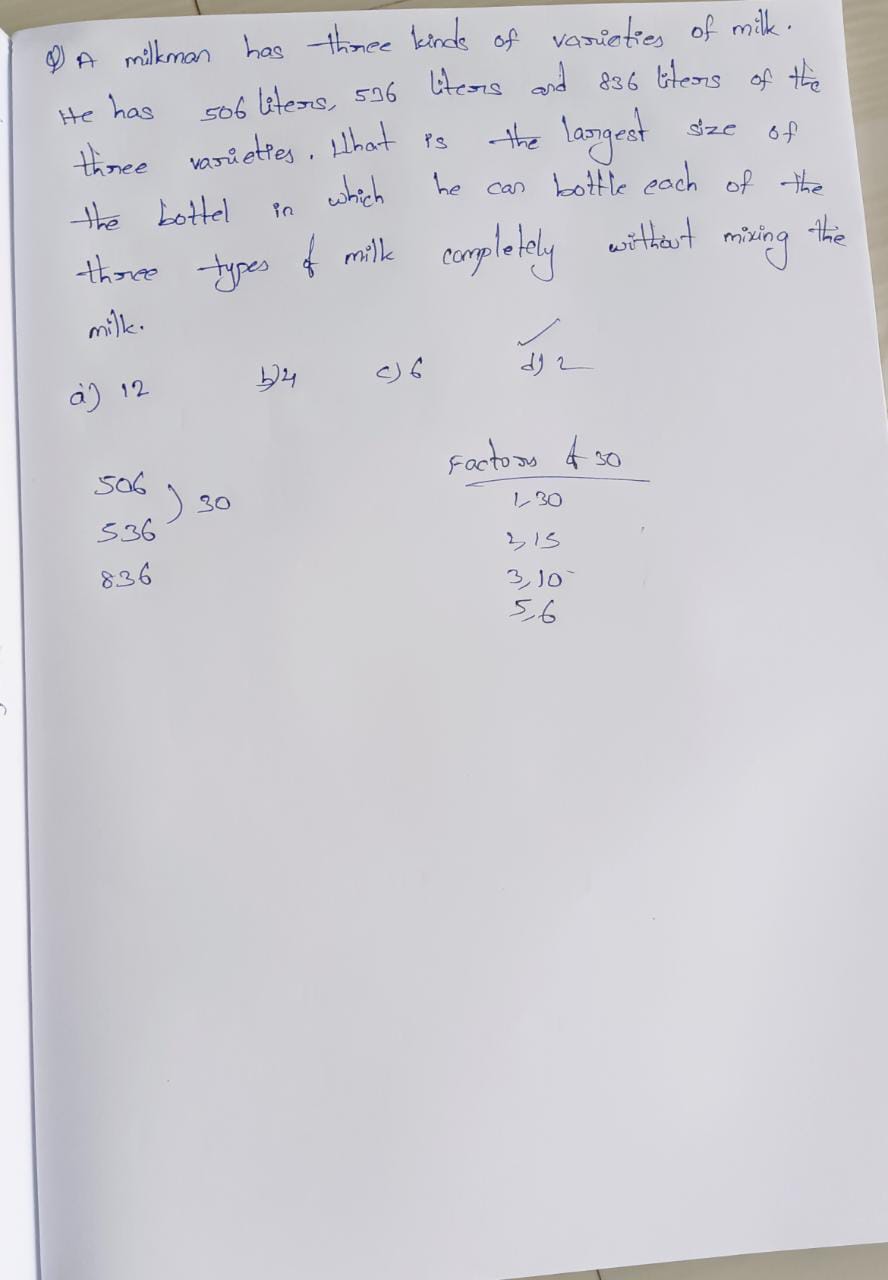 Q) A milkman has three kinds of varieties of milk.
He has 506 liters, 536 liters and 836 liters of the
three varieties. What is the largest size of
the bottel in which he can bottle each of the
three types of milk completely without mixing the
milk.
a) 12 b) 4 c) 6 d) 2
506
536 ) 30
836
Factors of 30
1, 30
2, 15
3, 10
5, 6